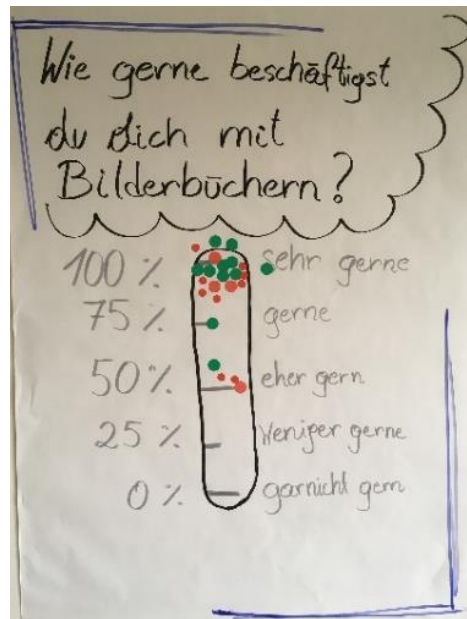 Wie gerne beschäftigst
du dich mit
Bilderbüchern?
100 % sehr gerne
75 % gerne
50 % eher gern
25 % Weniger gerne
0 % garnicht gern